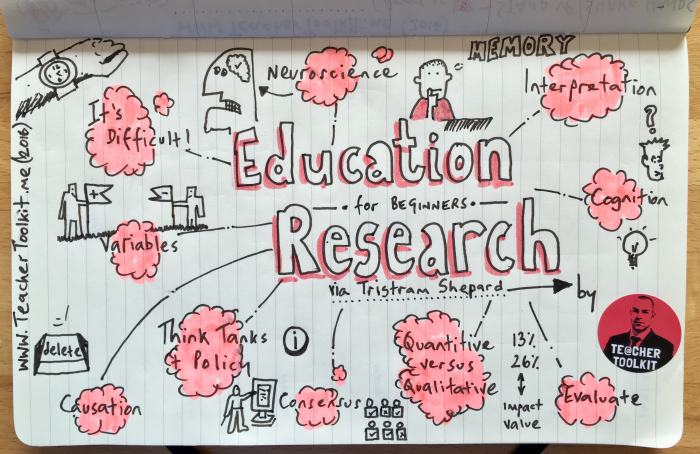 MEMORY
Neuroscience
Do
Interpretation
It's
Difficult!
Education
?
for BEGINNERS
Cognition
+
-
Variables
Research
via Tristram Shepard
by
TE@CHER
TOOLKIT
www.TeacherToolkit.me (2016)
delete
Think Tanks
+ Policy
i
Quantitive
versus
Qualitative
13%
26%
impact
value
Causation
Consensus
Evaluate